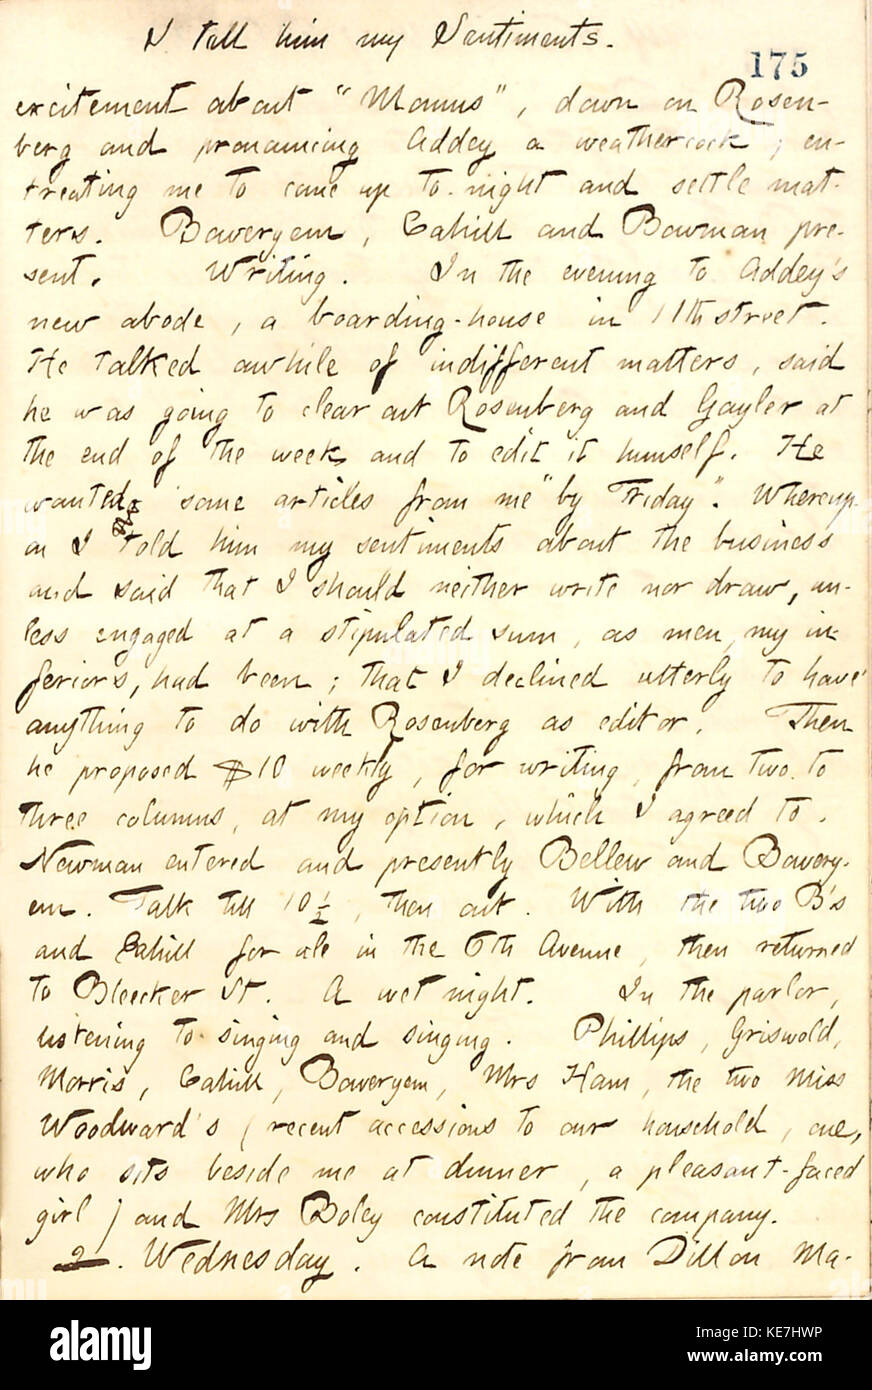 I tell him my Sentiments.
175
excitement about "Momus", down on Rosen-
berg and pronouncing Addey a weathercock; en-
treating me to come up to-night and settle mat-
ters. Boweryem, Cahill and Bowman pre-
sent. Writing. In the evening to Addey's
new abode, a boarding-house in 11th street.
He talked awhile of indifferent matters, said
he was going to clear out Rosenberg and Gayler at
the end of the week and to edit it himself. He
wanted some articles from me "by Friday". Whereup-
on I told him my sentiments about the business
and said that I should neither write nor draw, un-
less engaged at a stipulated sum, as men, my in-
feriors, had been; that I declined utterly to have
anything to do with Rosenberg as editor. Then
he proposed $10 weekly, for writing, from two to
three columns, at my option, which I agreed to.
Newman entered and presently Bellew and Bowery-
em. Talk till 10 1/2, then out. With the two B's
and Cahill for ale in the 6th Avenue, then returned
to Bleecker St. A wet night. In the parlor,
listening to singing and singing. Phillips, Griswold,
Morris, Cahill, Boweryem, Mrs Ham, the two Miss
Woodward's (recent accessions to our household, one,
who sits beside me at dinner, a pleasant-faced
girl) and Mrs Boley constituted the company.
2. Wednesday. A note from Dillon Ma-
alamy
Image ID: KE7HWP
www.alamy.com